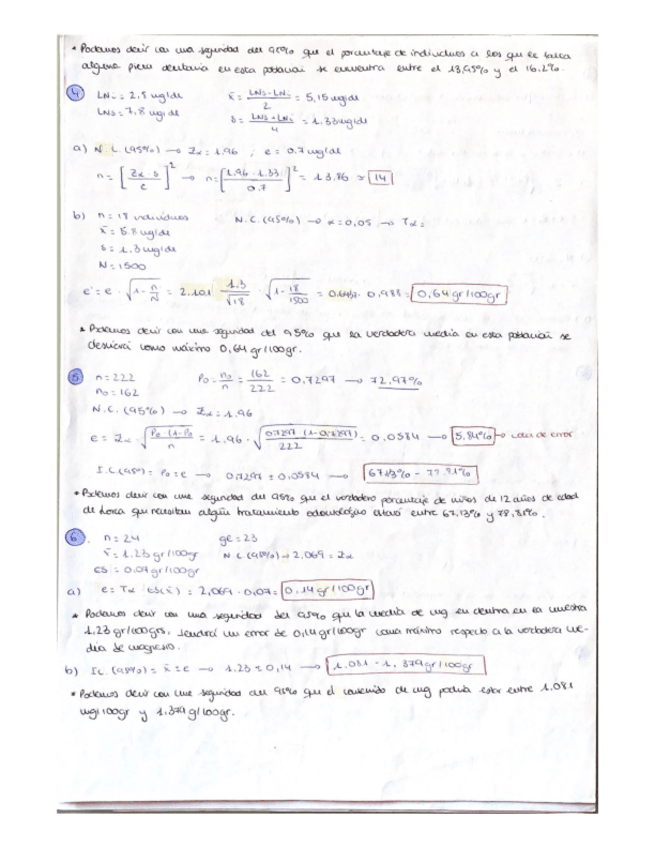 * Podemos decir con una seguridad del 95% que el porcentaje de individuos a los que le falta
alguna pieza dentaria en esta población se encuentra entre el 13,95% y el 16.2%.
4 LNi = 2.5 mg/de x̄ = LNs+LNi / 2 = 5,15 mg/de
LNs = 7,8 mg/de s = LNs-LNi / 4 = 1.33 mg/de
a) N.C. (95%) → Zα = 1.96 ; e = 0.7 mg/de
n = [Zα · s / e]² → n = [1.96 · 1.33 / 0.7]² = 13.86 ≈ 14
b) n = 18 individuos N.C. (95%) → α = 0,05 → Tα =
x̄ = 5.8 mg/de
s = 1.3 mg/de
N = 1500
e' = e · √1 - n/N = 2.101 · 1.3/√18 · √1 - 18/1500 = 0,988 = 0,64 gr/100gr
* Podemos decir con una seguridad del 95% que la verdadera media en esta población se
desviará como máximo 0,64 gr/100gr.
5 n = 222 Po = no/n = 162/222 = 0,7297 → 72,97%
no = 162
N.C. (95%) → Zα = 1.96
e = Zα · √Po · (1-Po) / n = 1,96 · √0,7297 · (1-0,7297) / 222 = 0,0584 → 5,84% → cota de error
I.C (95%) = Po ± e → 0,7297 ± 0,0584 → 67,13% - 78.81%
* Podemos decir con una seguridad del 95% que el verdadero porcentaje de niños de 12 años de edad
de Lorca que necesitan algún tratamiento odontológico estará entre 67,13% y 78,81%.
6. n = 24 gl = 23
x̄ = 1.23 gr/100gr N.C. (95%) → 2,069 = Zα
ES = 0,07 gr/100gr
a) e = Tα · ES(x̄) = 2,069 · 0,07 = 0,14 gr/100gr
* Podemos decir con una seguridad del 95% que la media de mg en dentina en la muestra
1,23 gr/100grs, tendrá un error de 0,14 gr/100gr como máximo respecto a la verdadera me-
dia de magnesio.
b) I.C. (95%) = x̄ ± e → 1.23 ± 0,14 → 1.081 - 1,379 gr/100gr
* Podemos decir con una seguridad del 95% que el contenido de mg podría estar entre 1.081
mg/100gr y 1,379 g/100gr.